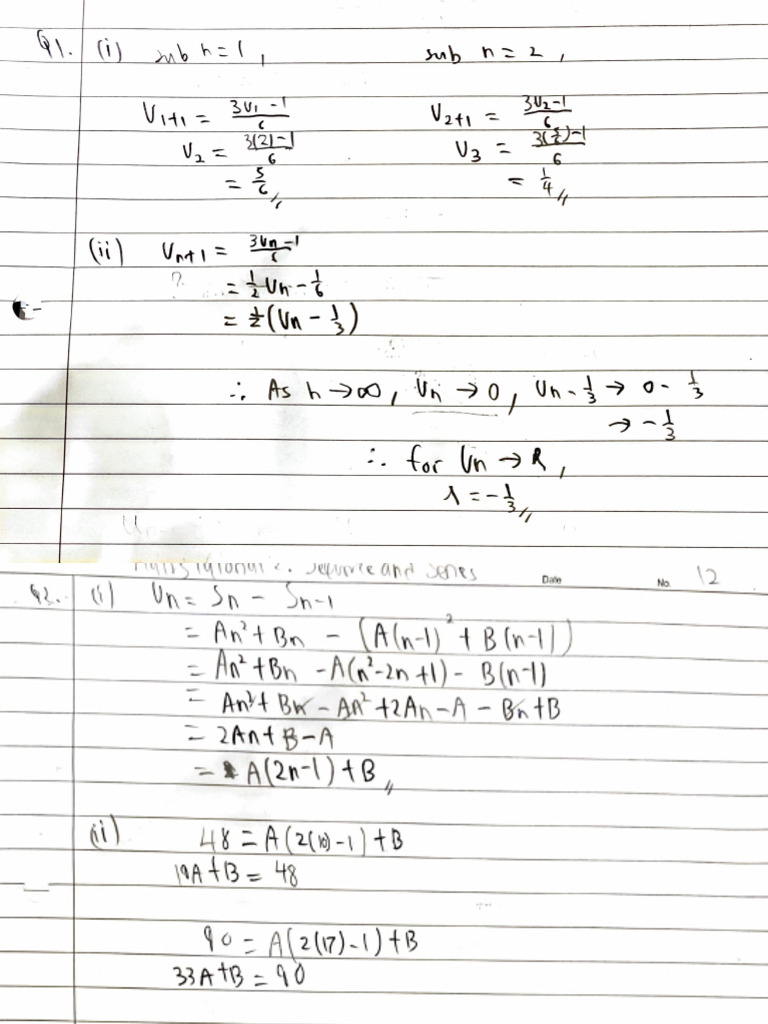 Q1. (i) sub n=1, sub n=2,
V1+1 = 3V1-1/6 V2+1 = 3V2-1/6
V2 = 3(2)-1/6 V3 = 3(5/6)-1/6
= 5/6 = 1/4
(ii) Un+1 = 3Un-1/6
?
= 1/2 Un - 1/6
= 1/2 (Un - 1/3)
∴ As n→∞, Un → 0, Un - 1/3 → 0 - 1/3
→ -1/3
∴ for Un → l,
λ = -1/3
Un
sequence and series Date No. 12
Q2. (i) Un = Sn - Sn-1
= An² + Bn - (A(n-1)² + B(n-1))
= An² + Bn - A(n²-2n+1) - B(n-1)
= An² + Bn - An² + 2An - A - Bn + B
= 2An + B - A
= A(2n-1) + B
(ii) 48 = A(2(10)-1) + B
19A + B = 48
90 = A(2(17)-1) + B
33A + B = 90